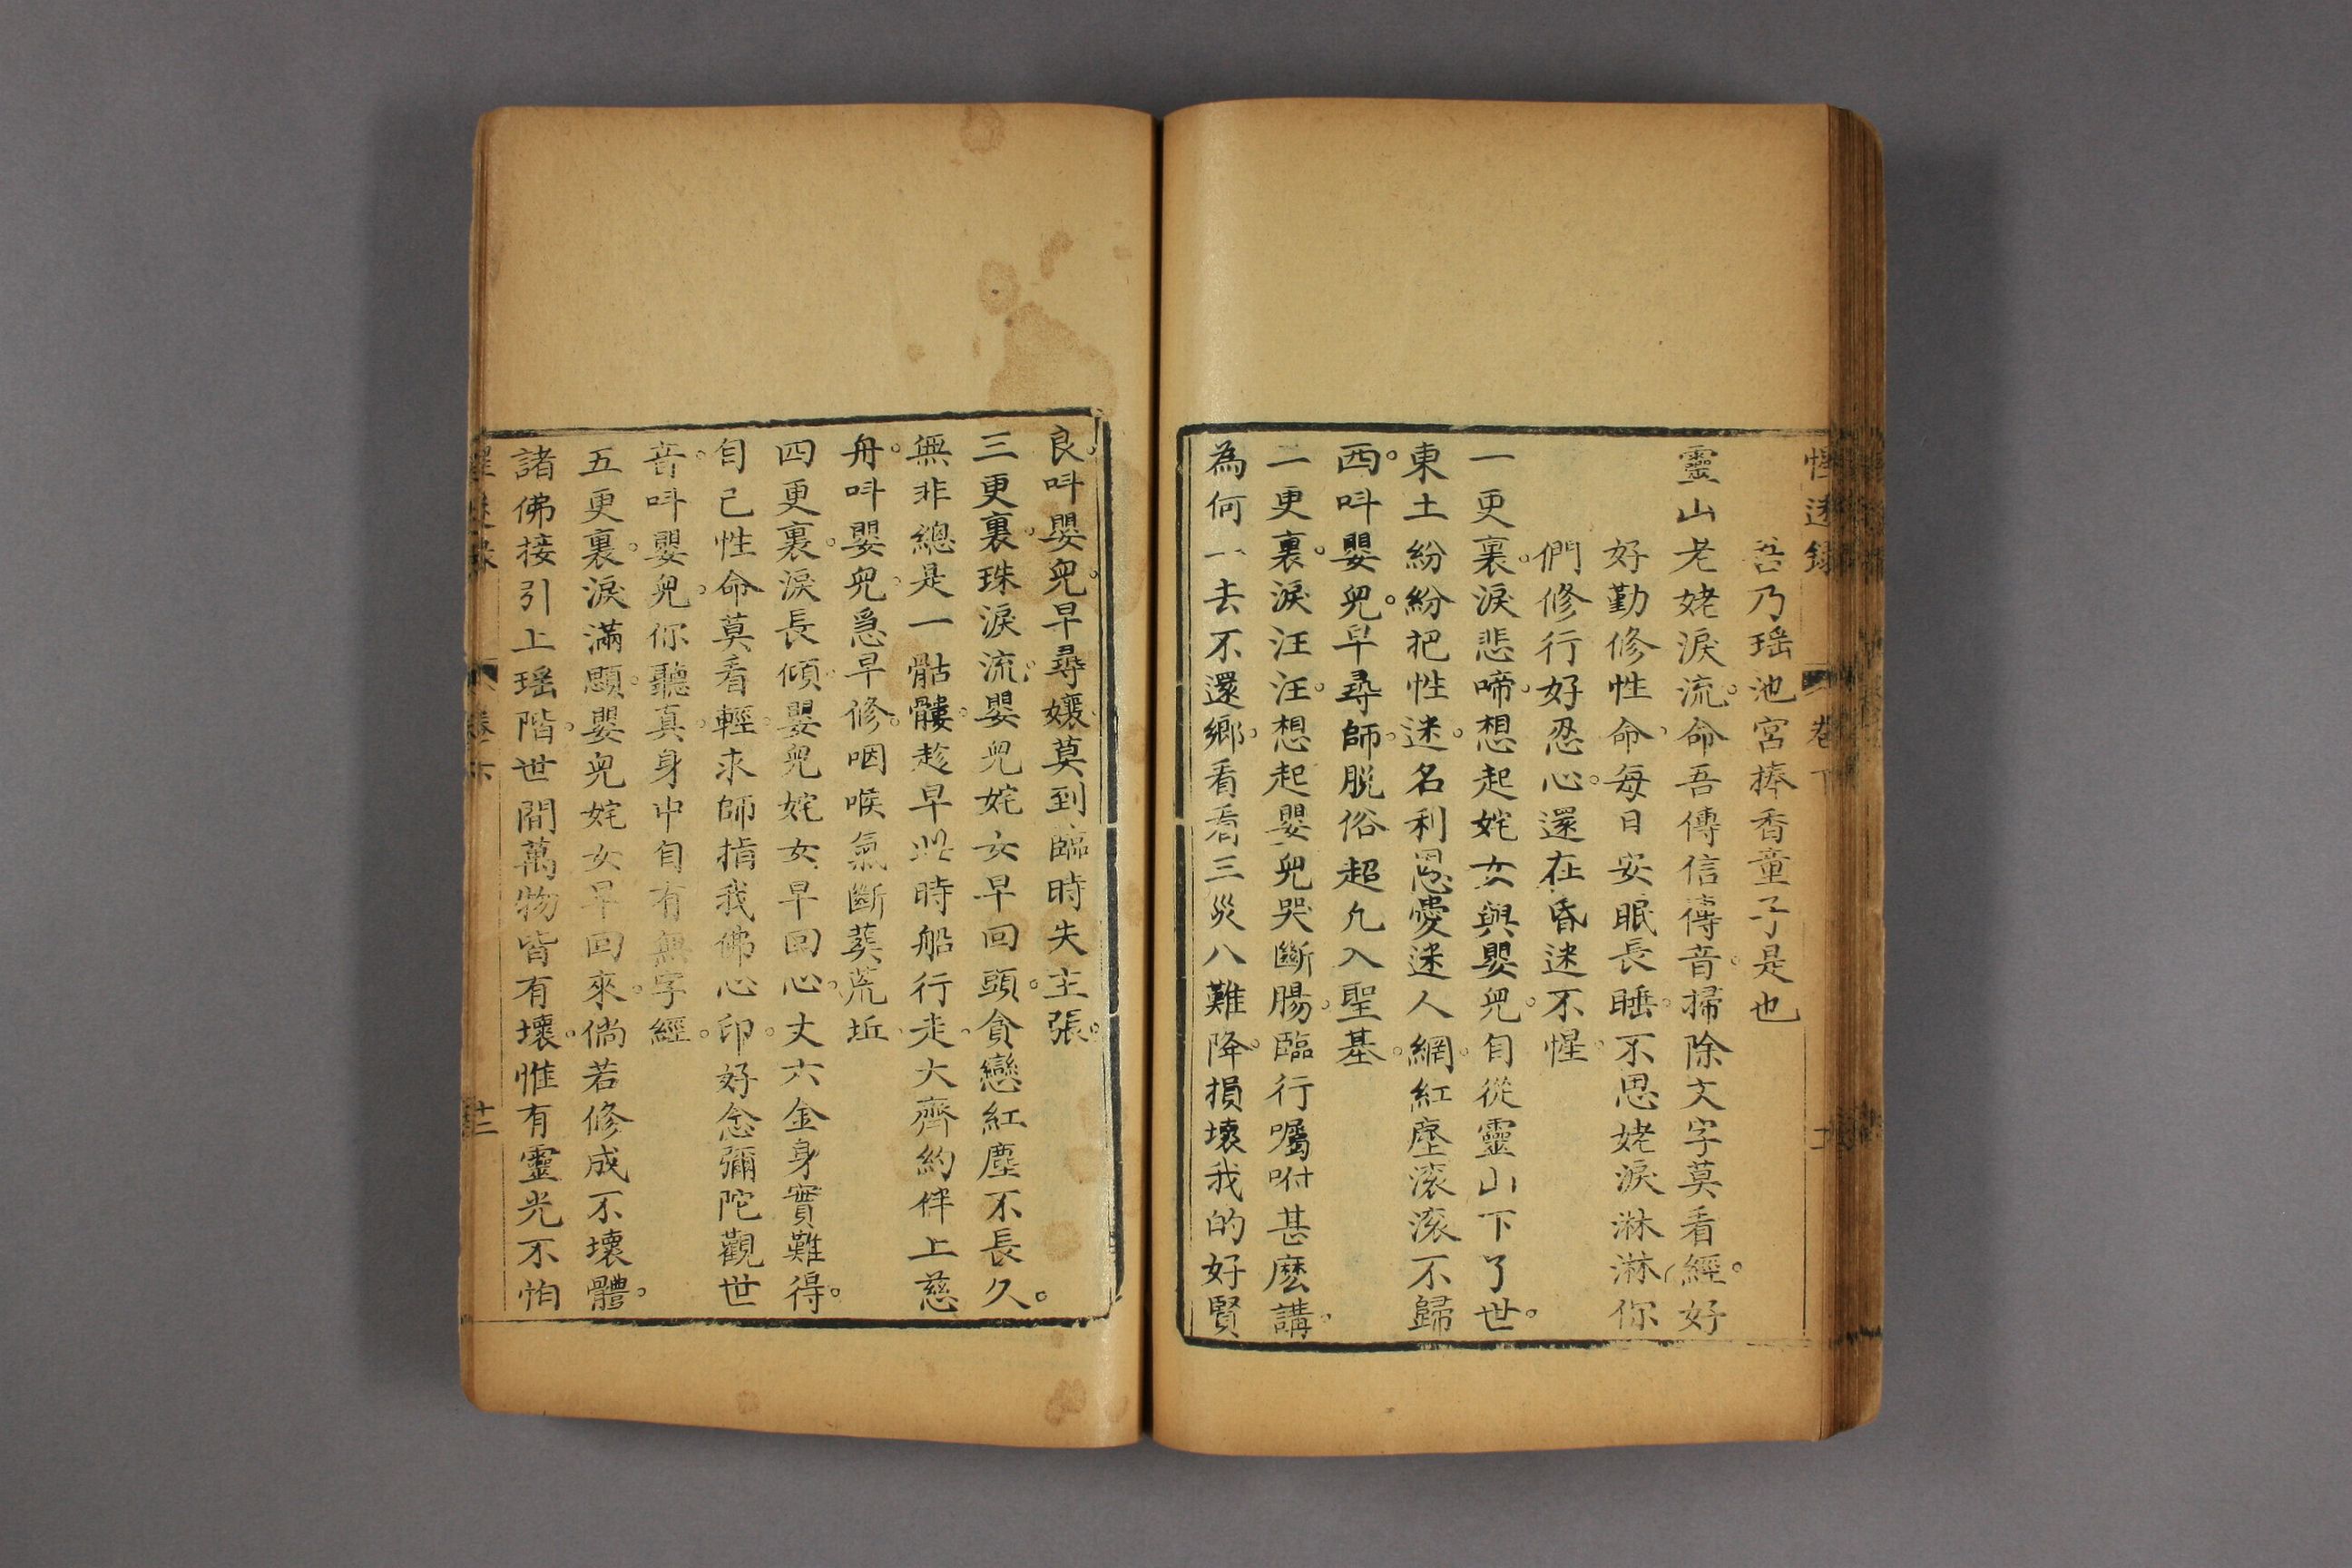 惺迷錄 卷下
吾乃瑶池宮捧香童子是也
靈山老姥淚流。命吾傳信傳音。掃除文字莫看經。好
好勤修性命、每日安眠長睡。不思姥淚淋淋、你
們修行好忍心。還在昏迷不惺。
一更裏。淚悲啼。想起姹女與嬰兒。自從靈山下了世。
東土紛紛把性迷。名利恩愛迷人網。紅塵滚滚不歸
西。呌嬰兒。早尋師。脱俗超凡入聖基。
二更裏。淚汪汪。想起嬰兒哭斷腸。臨行囑咐甚麽講。
為何一去不還鄉。看看三災八難降。損壞我的好賢
良。呌嬰兒。早尋孃。莫到臨時失主張。
三更裏。珠淚流。嬰兒姹女早回頭。貪戀紅塵不長久。
無非總是一骷髏。趁早此時船行走、大齊約伴上慈
舟。呌嬰兒。急早修。咽喉氣斷葬荒坵、
四更裏。淚長傾。嬰兒姹女早回心。丈六金身實難得。
自己性命莫看輕。求師指我佛心印。好念彌陀觀世
音。呌嬰兒。你聽真。身中自有無字經。
五更裏。淚滿顋。嬰兒姹女早回來。倘若修成不壞體。
諸佛接引上瑶階。世間萬物皆有壞。惟有靈光不怕
卷下 十二